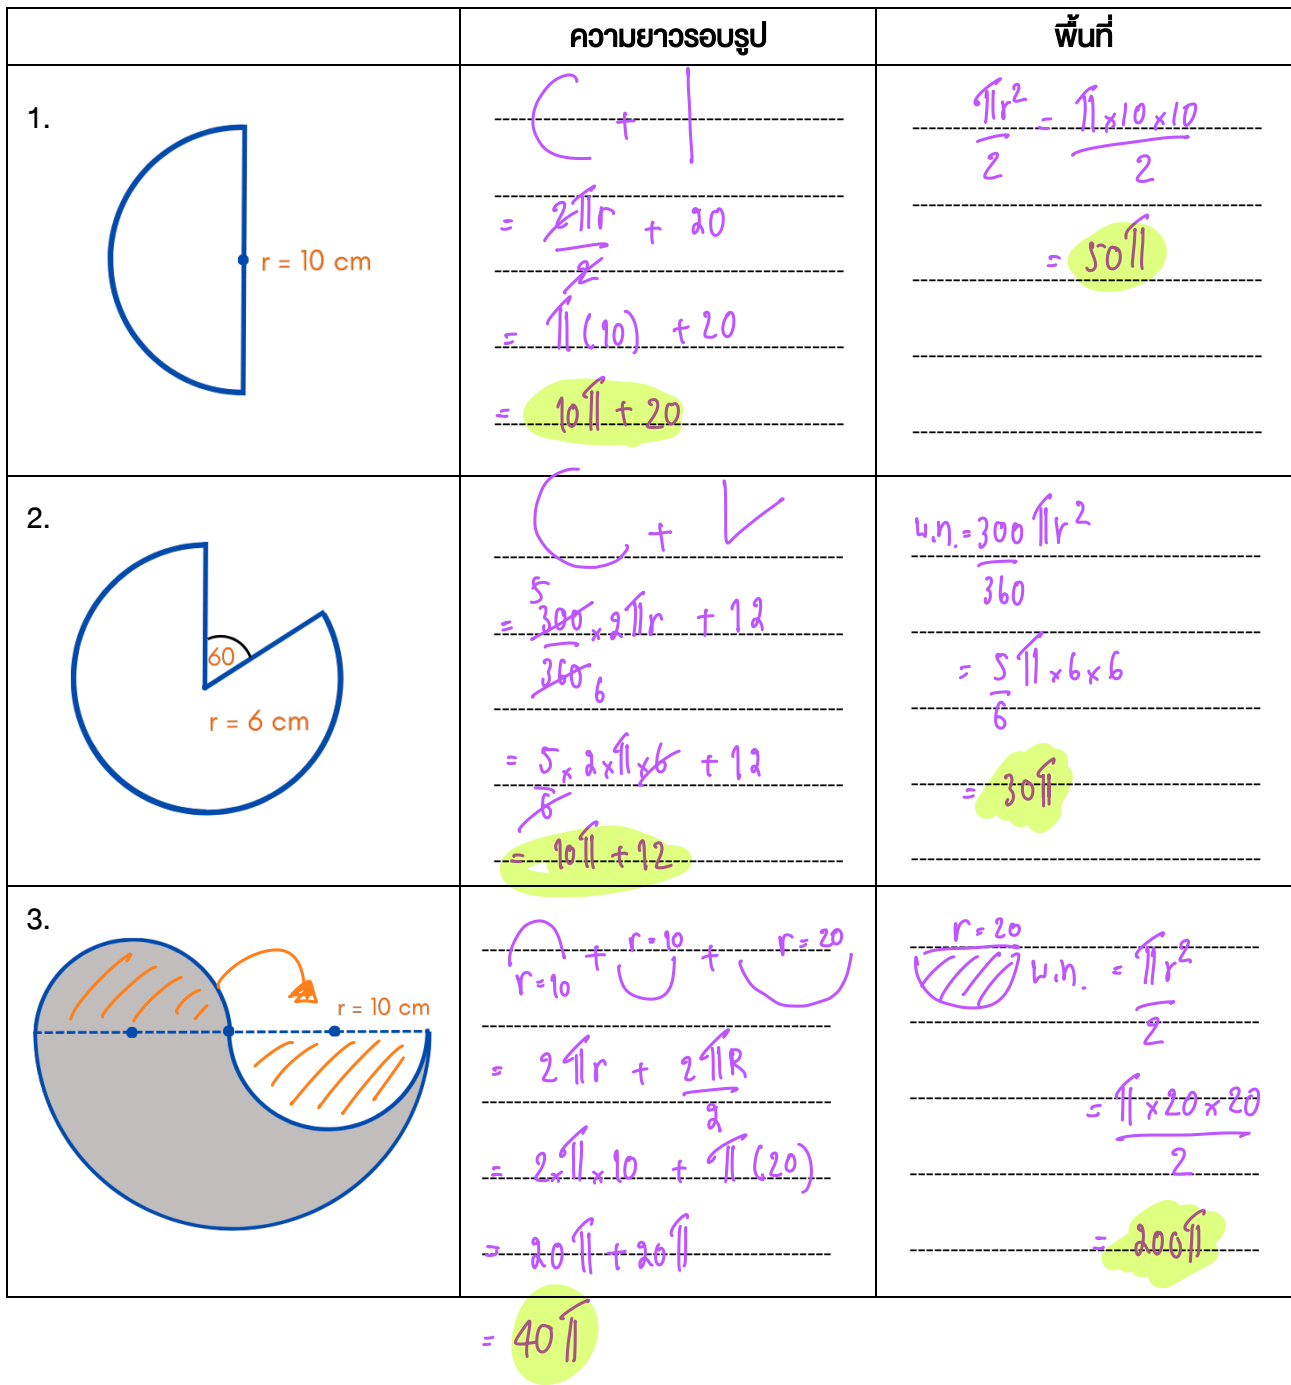 ความยาวรอบรูป
พื้นที่
1.
r = 10 cm
+
= 2πr/2 + 20
= π(10) + 20
= 10π + 20
πr²/2 = π×10×10/2
= 50π
2.
60
r = 6 cm
+
5
= 300/360 × 2πr + 12
6
= 5/6 × 2×π×6 + 12
= 10π + 12
พ.ท. = 300/360 πr²
= 5/6 π×6×6
= 30π
3.
r = 10 cm
r=10 + r=10 + r=20
= 2πr + 2πR/2
= 2×π×10 + π(20)
= 20π + 20π
= 40π
r=20
พ.ท. = πr²/2
= π×20×20/2
= 200π